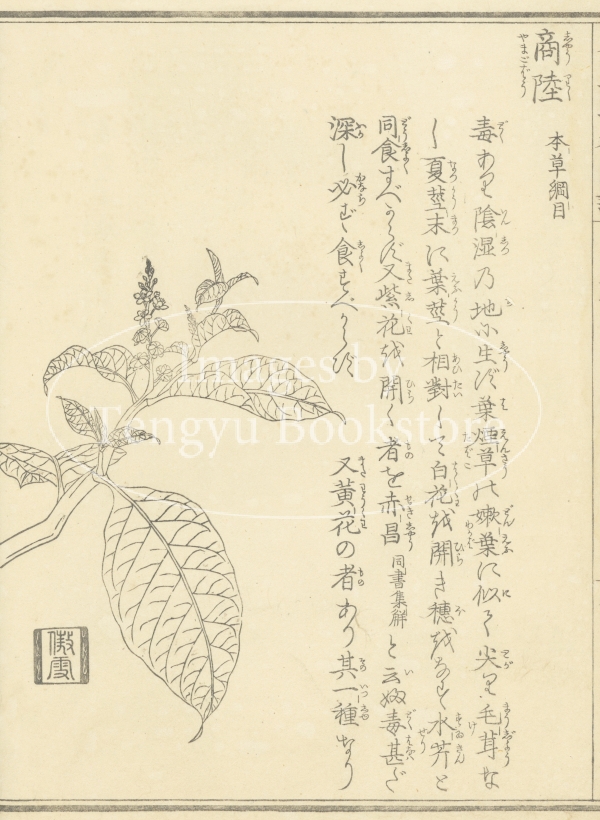 商陸
しやうりく
やまごばう
本草綱目
毒あり陰湿乃地に生ず葉煙草の嫩葉に似て尖り毛茸な
し夏莖末に葉莖と相對して白花を開き穂をなす水芹と
同食すべからず又紫花を開く者を赤昌
同書集解
と云
毒甚だ
深し必ず食すべからず
又黄花の者あり其一種なり
Images by
Tengyu Bookstore
傲雪